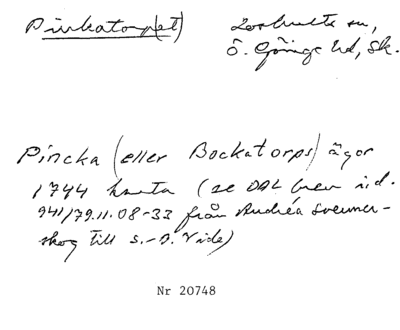 Pinkatorp(et) Loshults sn,
Ö. Göinge hd, Sk.
Pincka (eller Bockatorps) ägor
1744 karta (se DAL brev nid.
941/79.11.08-33 från Andréa Svenner-
skog till S.-A. Vide)
Nr 20748